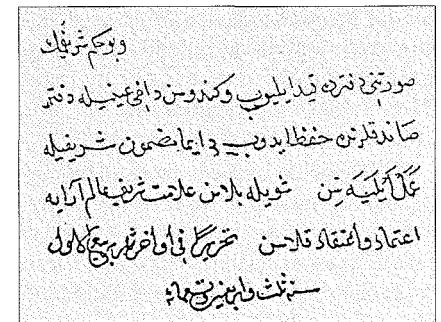 و بو حکم شریفک
صورتنی دفترده قید ایلیوب و کندوسن داخی عینیله دفتر
صاندقلرنده حفظ ایدوب دایما مضمون شریفیله
عمل ایلیه سن شویله بلاسن علامت شریف عالم آرایه
اعتماد و اعتقاد قلاسن تحریرا فی اواخر شهر ربیع الاول
سنه ثلث و اربعین و تسعمائه